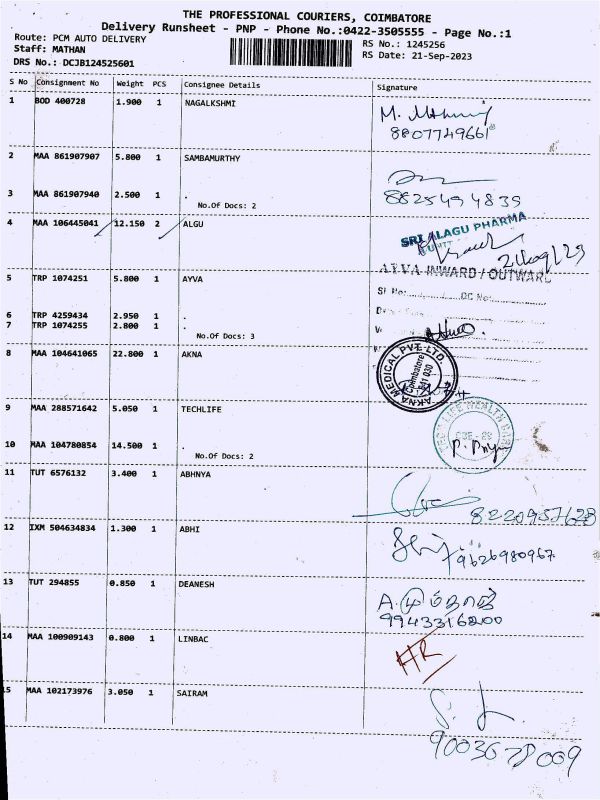 THE PROFESSIONAL COURIERS, COIMBATORE
Delivery Runsheet - PNP - Phone No.:0422-3505555 - Page No.:1
Route: PCM AUTO DELIVERY
RS No.: 1245256
Staff: MATHAN
RS Date: 21-Sep-2023
DRS No.: DCJB124525601
S No Consignment No Weight PCS Consignee Details Signature
1 BOD 400728 1.900 1 NAGALKSHMI
8807749661
2 MAA 861907907 5.800 1 SAMBAMURTHY
3 MAA 861907940 2.500 1 .
8825494835
No.Of Docs: 2
4 MAA 106445041 12.150 2 ALGU
SRI ALAGU PHARMA
5 TRP 1074251 5.800 1 AYVA
AYVA INWARD / OUTWARD
Sl No: DC No:
6 TRP 4259434 2.950 1 .
7 TRP 1074255 2.800 1 .
No.Of Docs: 3
8 MAA 104641065 22.800 1 AKNA
AKNA MEDICAL PVT. LTD.
Coimbatore
641 030
9 MAA 288571642 5.050 1 TECHLIFE
10 MAA 104780854 14.500 1 .
No.Of Docs: 2
11 TUT 6576132 3.400 1 ABHNYA
8220957628
12 IXM 504634834 1.300 1 ABHI
9626980967
13 TUT 294855 0.850 1 DEANESH
9943316200
14 MAA 100909143 0.800 1 LINBAC
HR
15 MAA 102173976 3.050 1 SAIRAM
9003678009